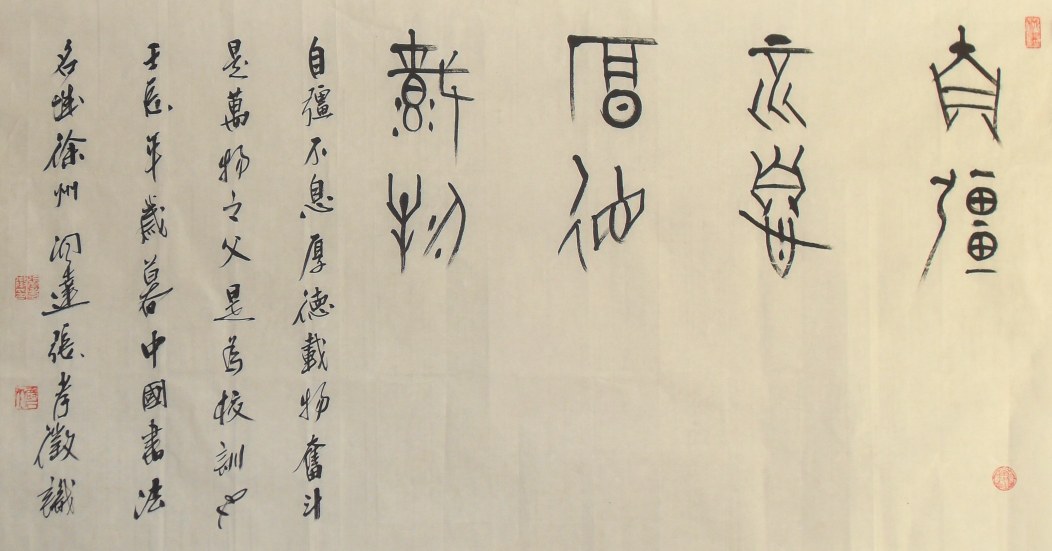 自彊
不息
厚德
載物
自彊不息厚德載物奮斗
是萬物之父是為校訓也
壬辰年歲暮中國書法
名城徐州洞達張孝徵識